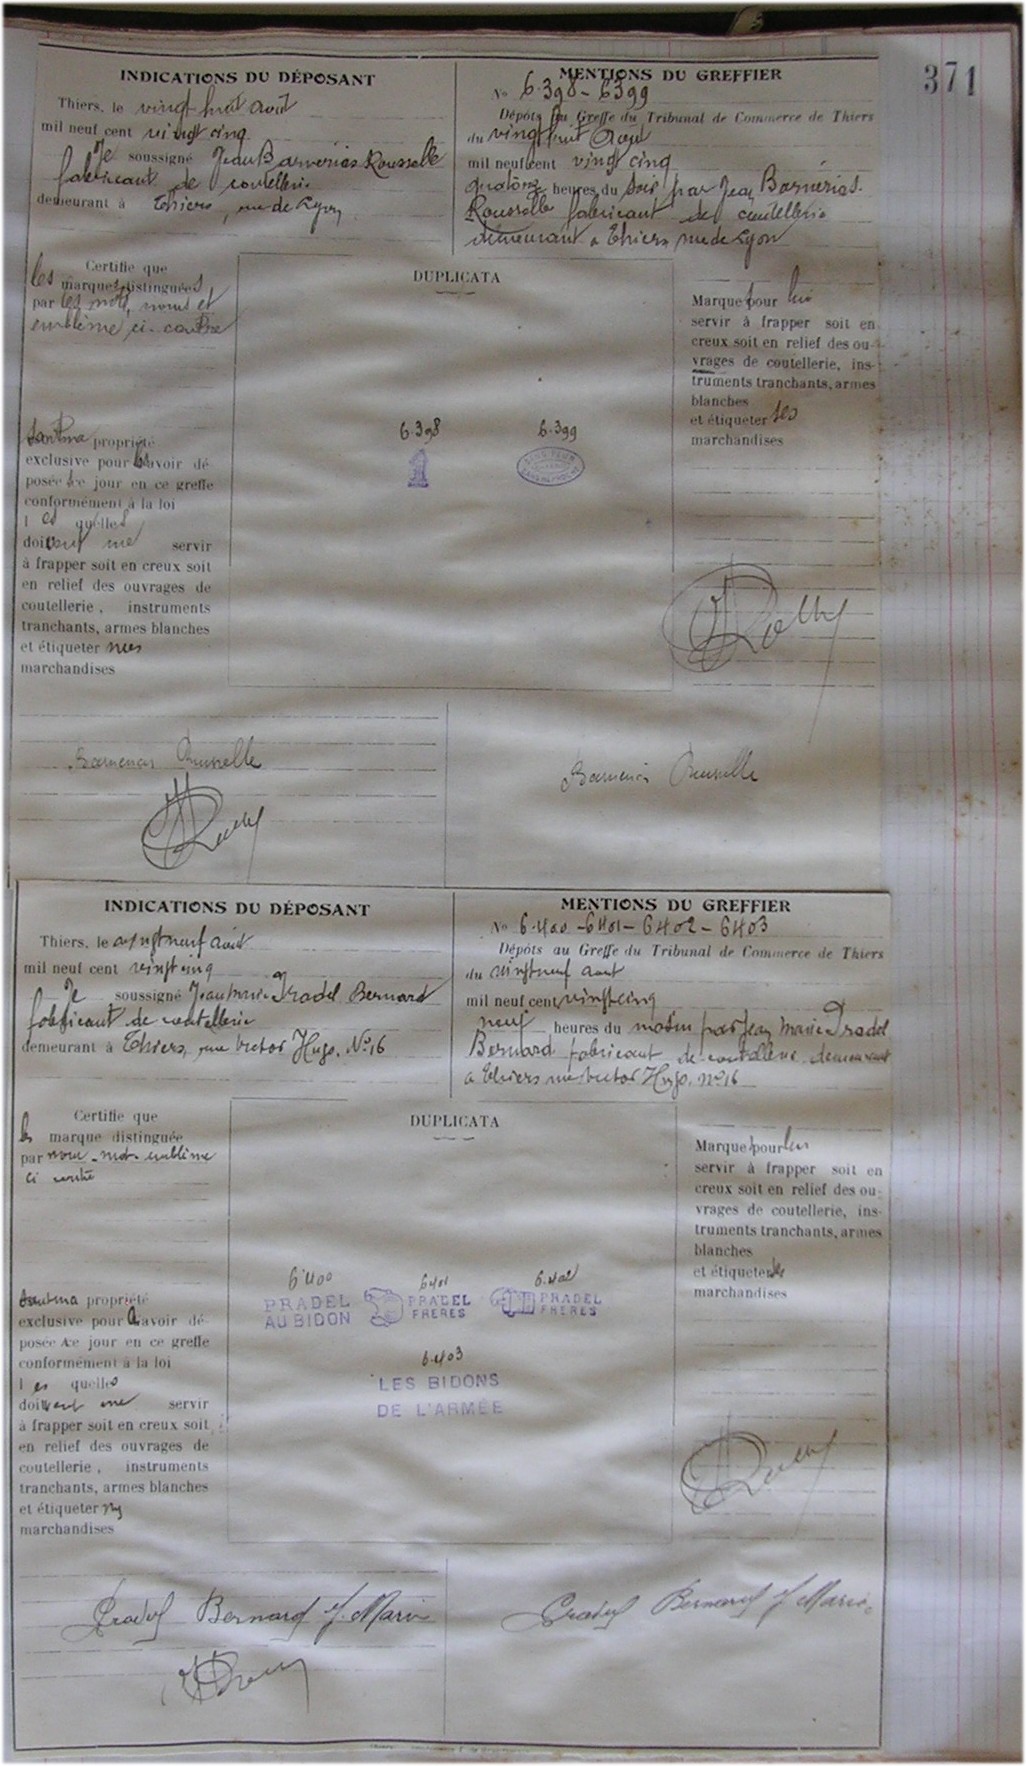 371
INDICATIONS DU DÉPOSANT
Thiers, le vingt huit août
mil neuf cent vingt cinq
Je soussigné Jean Barnérias Rousselle
fabricant de coutellerie
demeurant à Thiers, rue de Lyon
MENTIONS DU GREFFIER
No 6.398 - 6399
Dépôts au Greffe du Tribunal de Commerce de Thiers
du vingt huit Août
mil neuf cent vingt cinq
quatorze heures du soir par Jean Barnérias
Rousselle fabricant de coutellerie
demeurant a Thiers rue de Lyon
Certifie que
les marques distinguées
par les mots, noms et
emblème ci-contre
sont ma propriété
exclusive pour les avoir dé-
posée ce jour en ce greffe
conformément à la loi
les quelles
doivent me servir
à frapper soit en creux soit
en relief des ouvrages de
coutellerie, instruments
tranchants, armes blanches
et étiqueter mes
marchandises
DUPLICATA
6.398 6.399
Marque pour lui
servir à frapper soit en
creux soit en relief des ou-
vrages de coutellerie, ins-
truments tranchants, armes
blanches
et étiqueter ses
marchandises
Barnérias Rousselle
Barnérias Rousselle
INDICATIONS DU DÉPOSANT
Thiers, le vingt neuf août
mil neuf cent vingt cinq
Je soussigné Jean Marie Pradel Bernard
fabricant de coutellerie
demeurant à Thiers, rue Victor Hugo, No 16
MENTIONS DU GREFFIER
No 6.400 - 6401 - 6402 - 6403
Dépôts au Greffe du Tribunal de Commerce de Thiers
du vingt neuf août
mil neuf cent vingt cinq
neuf heures du matin par Jean Marie Pradel
Bernard fabricant de coutellerie demeurant
a Thiers rue Victor Hugo, no 16
Certifie que
les marque distinguée
par nom - mot - emblème
ci contre
sont ma propriété
exclusive pour avoir dé-
posée ce jour en ce greffe
conformément à la loi
les quelles
doivent me servir
à frapper soit en creux soit
en relief des ouvrages de
coutellerie, instruments
tranchants, armes blanches
et étiqueter mes
marchandises
DUPLICATA
6.400 6401 6.402
PRADEL
AU BIDON
PRADEL
FRERES
PRADEL
FRERES
6.403
LES BIDONS
DE L'ARMÉE
Marque pour lui
servir à frapper soit en
creux soit en relief des ou-
vrages de coutellerie, ins-
truments tranchants, armes
blanches
et étiqueter
marchandises
Pradel Bernard J. Marie
Pradel Bernard J. Marie